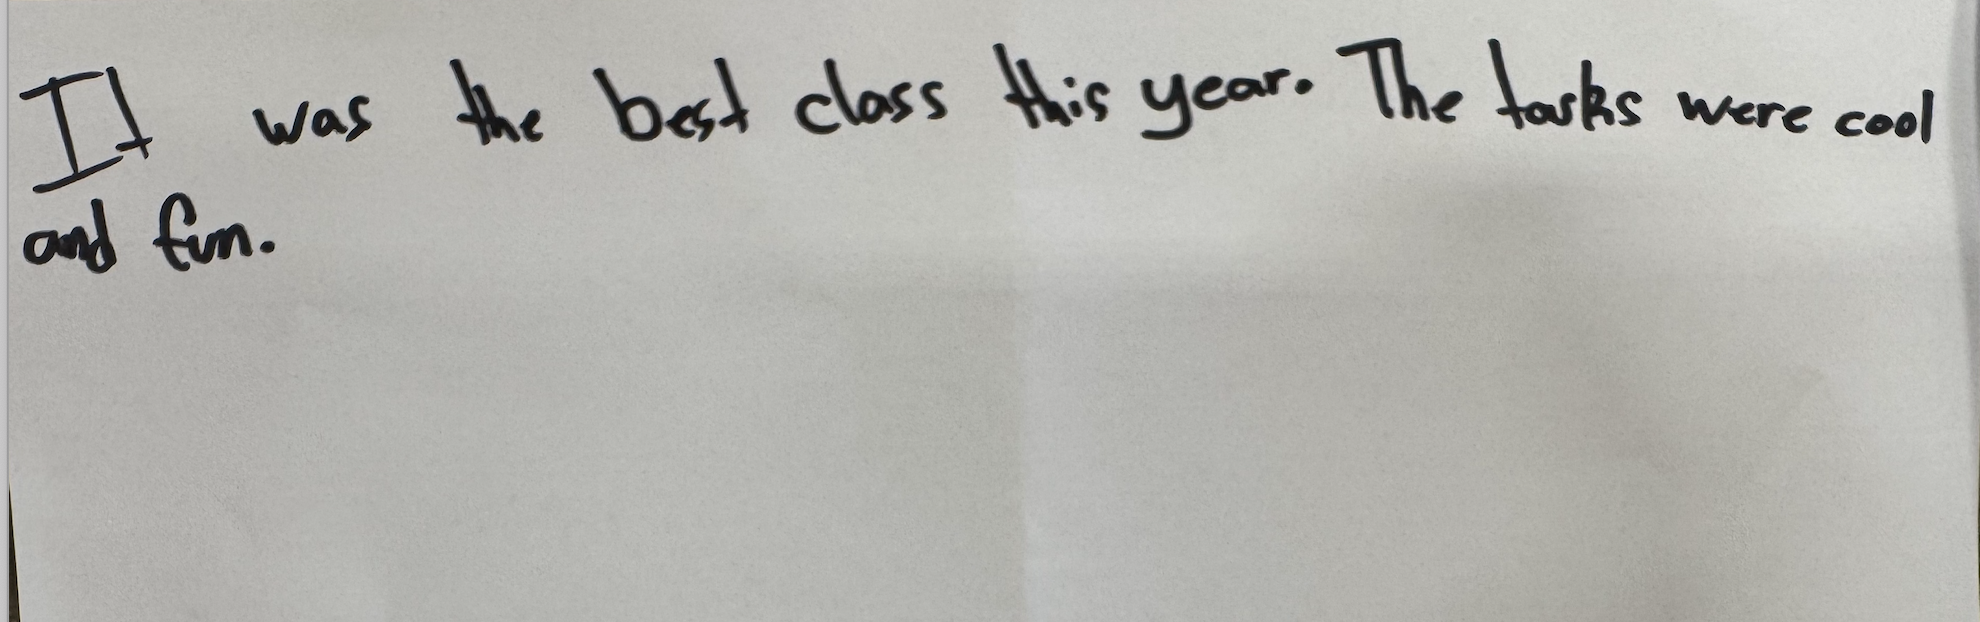 It was the best class this year. The tasks were cool
and fun.